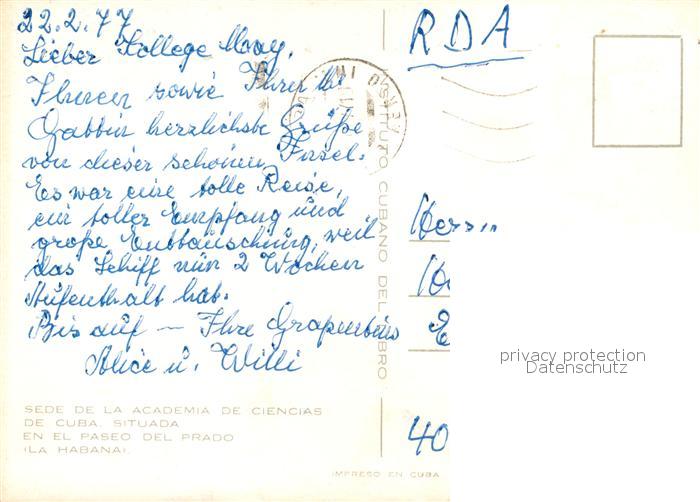 22.2.77
Lieber Kollege May,
Ihnen sowie Ihrer lb.
Gattin herzlichste Grüße
von dieser schönen Insel.
Es war eine tolle Reise,
ein toller Empfang und
große Enttäuschung, weil
das Schiff nur 2 Wochen
Aufenthalt hat.
Bis auf — Ihre
Alice u. Willi
SEDE DE LA ACADEMIA DE CIENCIAS
DE CUBA, SITUADA
EN EL PASEO DEL PRADO
(LA HABANA).
INSTITUTO CUBANO DEL LIBRO
IMPRESO EN CUBA
RDA
Herrn
40
privacy protection
Datenschutz